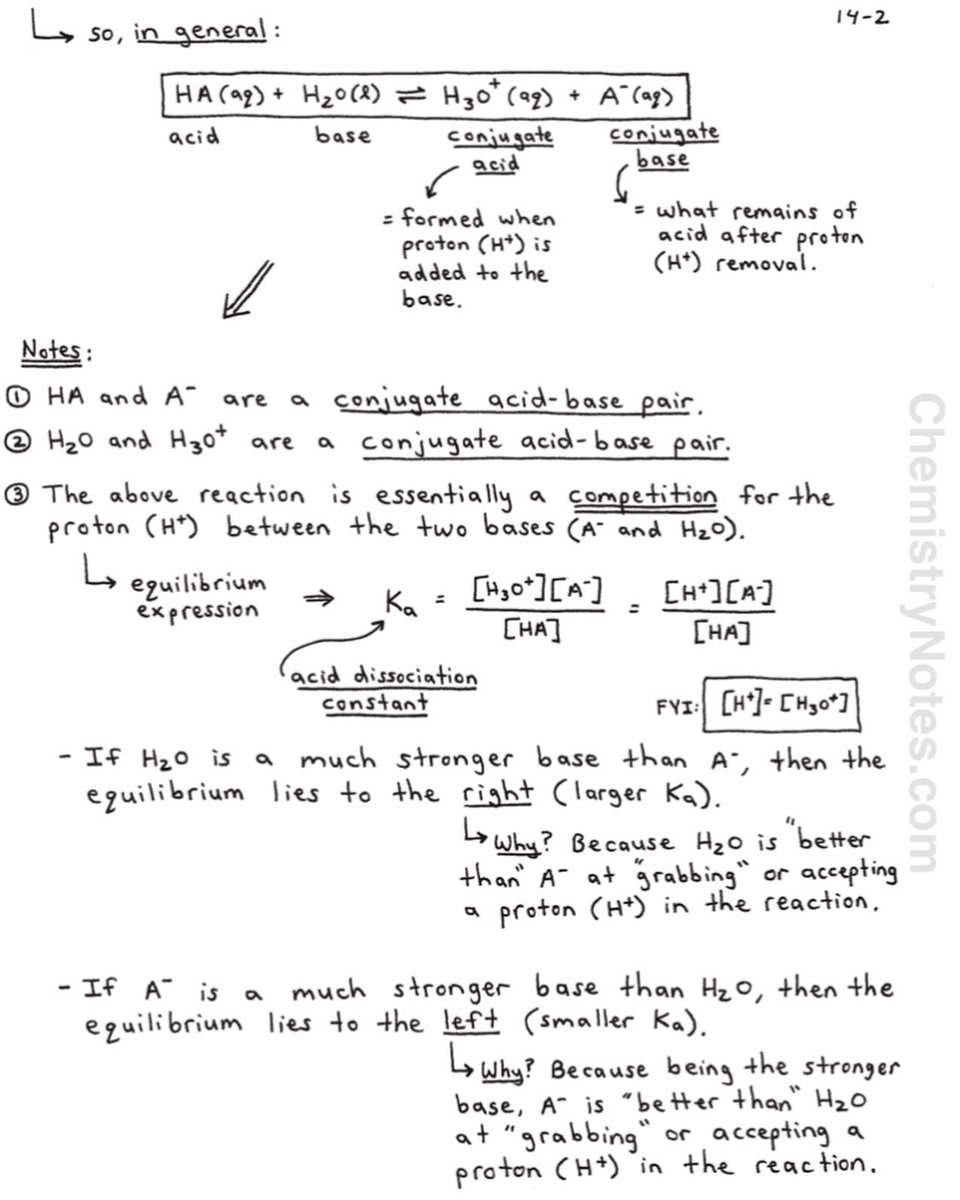 14-2
↳ so, in general:
HA(aq) + H₂O(l) ⇌ H₃O⁺(aq) + A⁻(aq)
acid base conjugate acid conjugate base
= formed when
proton (H⁺) is
added to the
base.
= what remains of
acid after proton
(H⁺) removal.
Notes:
① HA and A⁻ are a conjugate acid-base pair.
② H₂O and H₃O⁺ are a conjugate acid-base pair.
③ The above reaction is essentially a competition for the
proton (H⁺) between the two bases (A⁻ and H₂O).
↳ equilibrium
expression ⇒ Ka = [H₃O⁺][A⁻] / [HA] = [H⁺][A⁻] / [HA]
acid dissociation
constant
FYI: [H⁺]= [H₃O⁺]
- If H₂O is a much stronger base than A⁻, then the
equilibrium lies to the right (larger Ka).
↳ Why? Because H₂O is "better
than" A⁻ at "grabbing" or accepting
a proton (H⁺) in the reaction.
- If A⁻ is a much stronger base than H₂O, then the
equilibrium lies to the left (smaller Ka).
↳ Why? Because being the stronger
base, A⁻ is "better than" H₂O
at "grabbing" or accepting a
proton (H⁺) in the reaction.
ChemistryNotes.com